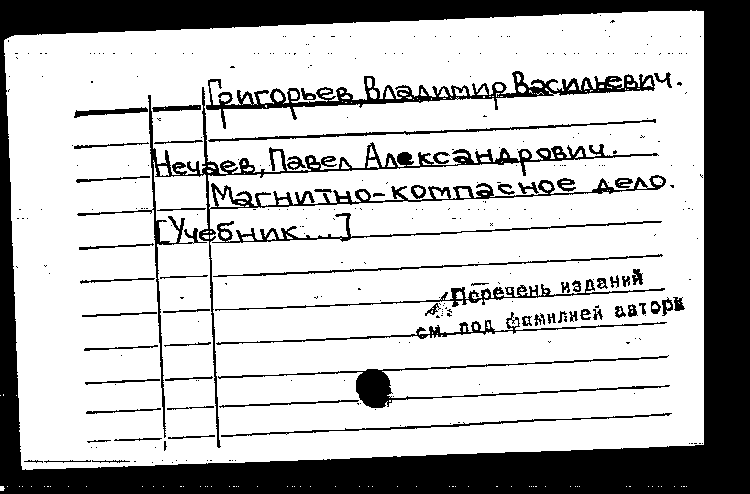 Григорьев, Владимир Васильевич.
Нечаев, Павел Александрович.
Магнитно-компасное дело.
[Учебник...]
Перечень изданий
см. под фамилией автора